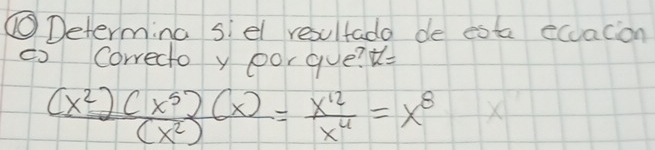 ⑩ Determina si el resultado de esta ecuacion
es correcto y porque?
(x²)(x⁵)(x) / (x²) = x¹² / x⁴ = x⁸